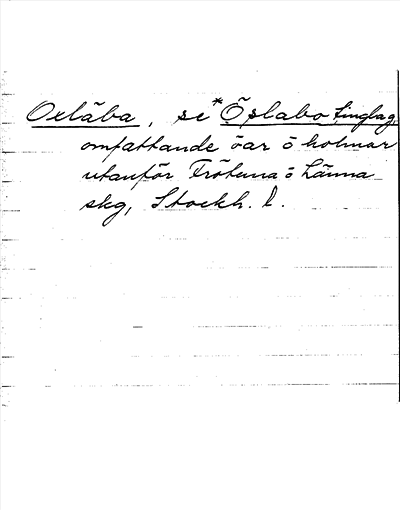 Oxlåba, se *Öslabo tinglag,
omfattande öar ö holmar
utanför Frötuna ö Länna
skg, Stockh. l.